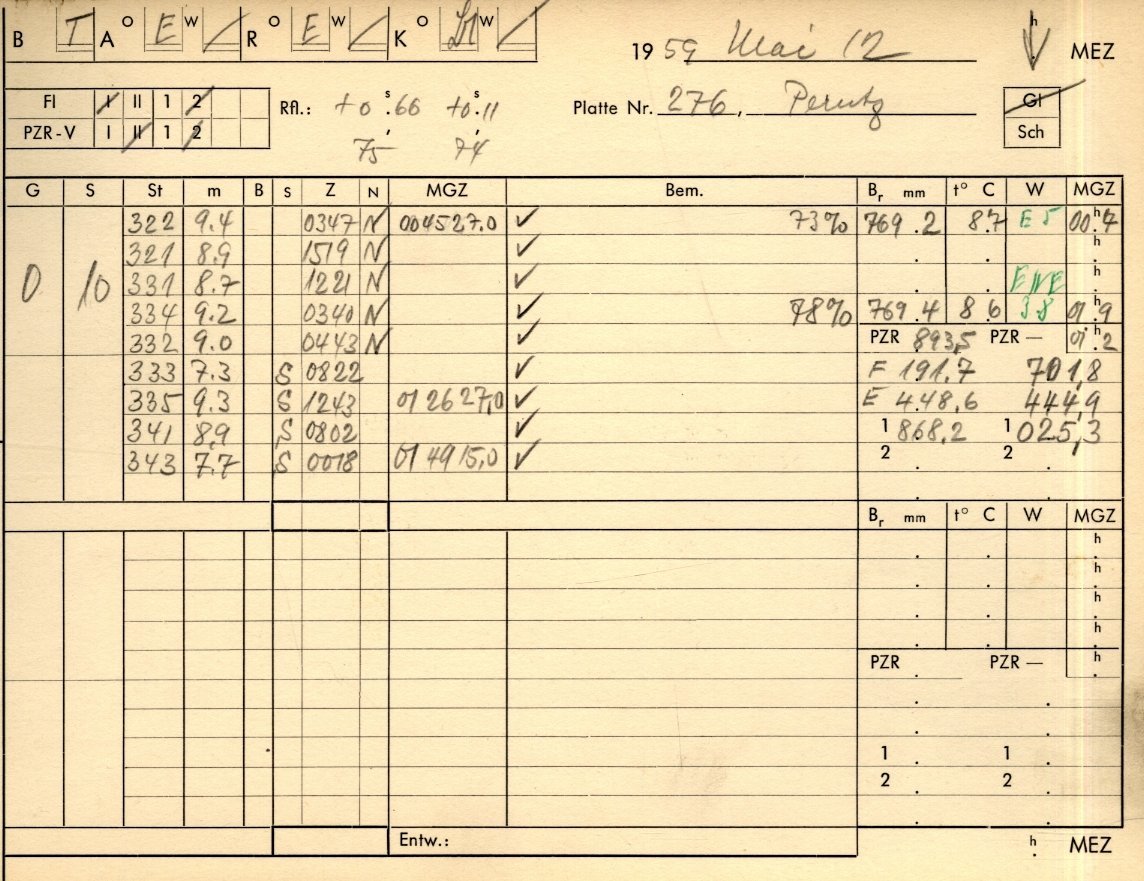 B T A O E W / R O E W / K O W / 19 59 Mai 12 h MEZ
FI I II 1 2 Rfl.: +0 s.66 +0 s.11 Platte Nr. 276, Perutz Gl
PZR-V I II 1 2 75 74 Sch
G S St m B S Z N MGZ Bem. Br mm t° C W MGZ
322 9.4 0347 N 004527.0 ✓ 73% 769.2 8.7 E 5 00h.7
321 8.9 1519 N ✓ h
0 10 331 8.7 1221 N ✓ ENE h
334 9.2 0340 N ✓ 78% 769.4 8.6 3.8 01h.9
332 9.0 0443 N ✓ PZR 893,5 PZR — 01h.2
333 7.3 S 0822 ✓ F 191.7 701,8
335 9.3 S 1243 012627,0 ✓ E 448.6 444,9
341 8,9 S 0802 ✓ 1 868.2 1 025,3
343 7.7 S 0018 014915,0 ✓ 2 2
Br mm t° C W MGZ
h
h
h
h
PZR PZR — h
1 1
2 2
Entw.: h MEZ